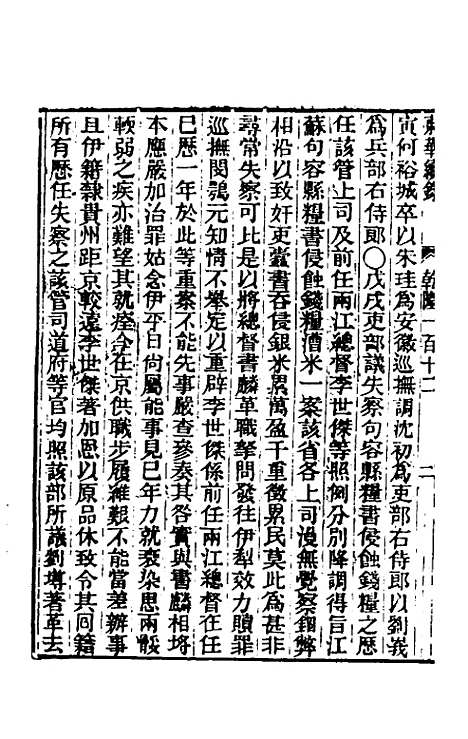 東華續錄 乾隆一百十二 二
寅何裕城卒以朱珪爲安徽巡撫調沈初爲吏部右侍郎以劉峩
爲兵部右侍郎〇戊戌吏部議失察句容縣糧書侵蝕錢糧之歷
任該管上司及前任兩江總督李世傑等照例分別降調得旨江
蘇句容縣糧書侵蝕錢糧漕米一案該省各上司漫無覺察錮弊
相沿以致奸吏蠹書吞侵銀米累萬盈千重徵累民莫此爲甚非
尋常失察可比是以將總督書麟革職拏問發往伊犁效力贖罪
巡撫閔鶚元知情不舉定以重辟李世傑係前任兩江總督在任
已歷一年於此等重案不能先事嚴查參奏其咎實與書麟相埒
本應嚴加治罪姑念伊平日尚屬能事見已年力就衰染患兩骽
輭弱之疾亦難望其就痊令在京供職步履維艱不能當差辦事
且伊籍隸貴州距京較遠李世傑著加恩以原品休致令其回籍
所有歷任失察之該管司道府等官均照該部所議劉墫著革去